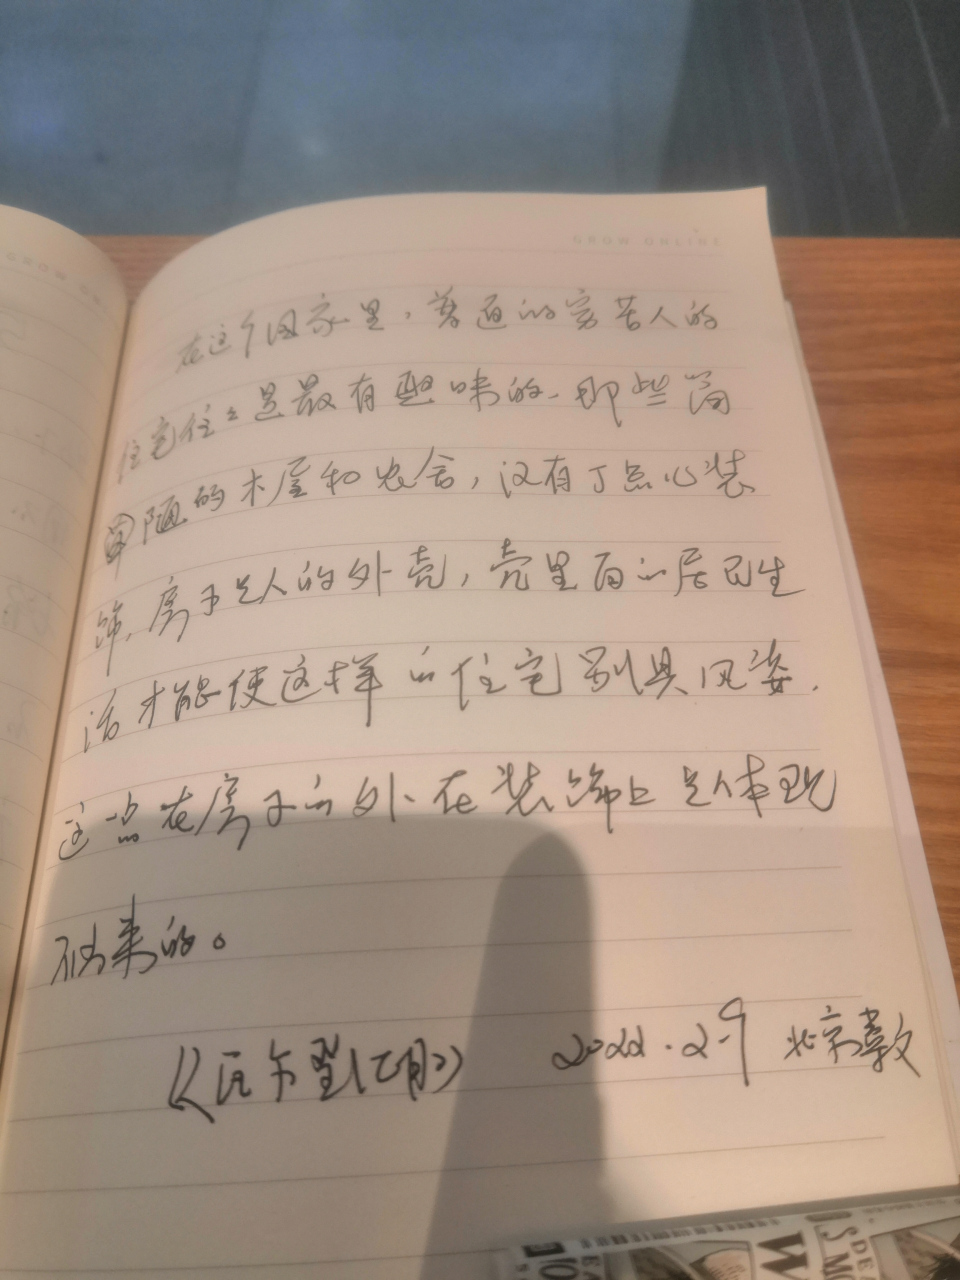 GROW ONLINE
在这个国家里，普通的穷苦人的
住宅往往是最有趣味的.那些简
单陋的木屋和农舍，没有丁点心装
饰.房子是人的外壳，壳里面的居民生
活才能使这样的住宅别具风姿.
这一点在房子的外在装饰上是体现
不出来的。
《瓦尔登(湖)》 2022.2.9 北京
DE
W